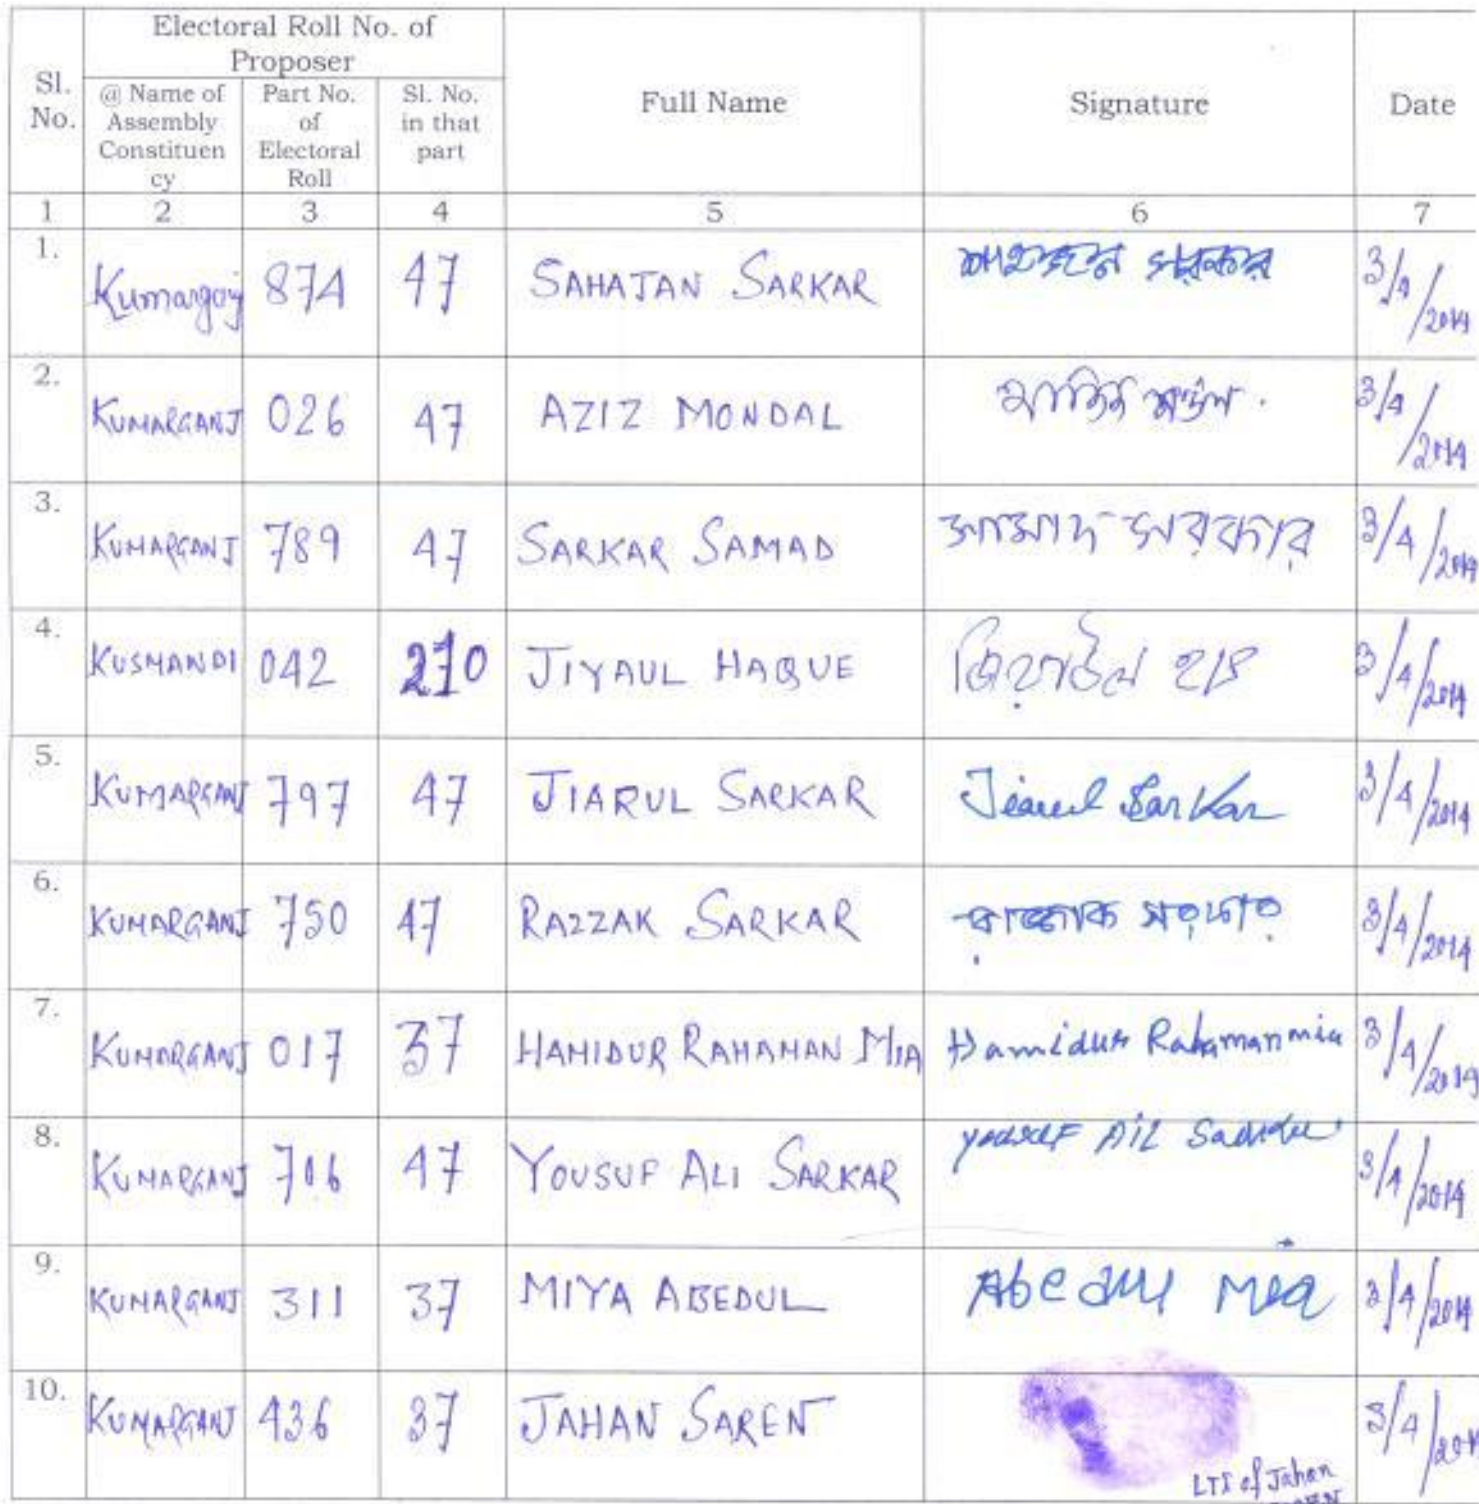 Electoral Roll No. of
Proposer
Sl.
No.
@ Name of
Assembly
Constituen
cy
Part No.
of
Electoral
Roll
Sl. No.
in that
part
Full Name
Signature
Date
1 2 3 4 5 6 7
1. Kumargoj 874 47 SAHAJAN SARKAR সাহাজান সরকার 3/4/2014
2. KUMARGANJ 026 47 AZIZ MONDAL আজিজ মণ্ডল. 3/4/2014
3. KUMARGANJ 789 47 SARKAR SAMAD সামাদ সরকার 3/4/2014
4. KUSMANDI 042 270 JIYAUL HAQUE জিয়াউল হক 3/4/2014
5. KUMARGANJ 797 47 JIARUL SARKAR Jiarul Sarkar 3/4/2014
6. KUMARGANJ 750 47 RAZZAK SARKAR রাজ্জাক সরকার 3/4/2014
7. KUMARGANJ 017 37 HAMIDUR RAHAMAN MIA Hamidur Rahaman mia 3/4/2014
8. KUMARGANJ 706 47 YOUSUF ALI SARKAR yousuf AiL 3/4/2014
9. KUMARGANJ 311 37 MIYA ABEDUL Abedul Mia 3/4/2014
10. KUMARGANJ 436 37 JAHAN SAREN 3/4/2014
LTI of Jahan